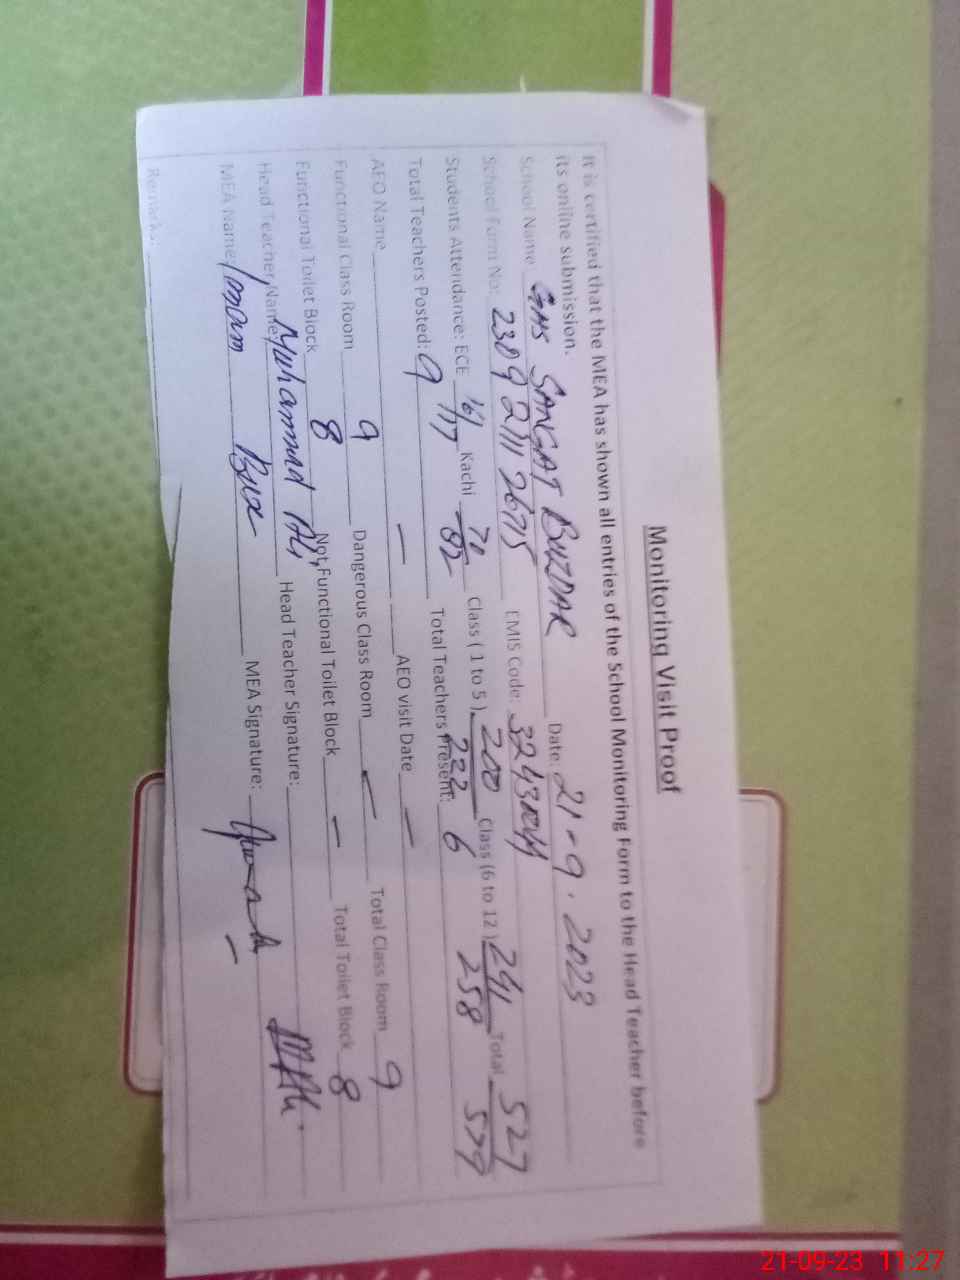 Monitoring Visit Proof
It is certified that the MEA has shown all entries of the School Monitoring Form to the Head Teacher before
its online submission.
School Name GHS SANGAT BUZDAR Date: 21-9.2023
School Form No: 2309 2111 26715 EMIS Code:
Students Attendance: ECE 16/17 Kachi 70/82 Class ( 1 to 5 ) 200/222 Class (6 to 12 ) 241/258 Total 527/579
Total Teachers Posted: 9 Total Teachers Present: 6
AEO Name — AEO visit Date —
Functional Class Room 9 Dangerous Class Room — Total Class Room 9
Functional Toilet Block 8 Not Functional Toilet Block — Total Toilet Block 8
Head Teacher Name: Muhammad Ali Head Teacher Signature:
MEA Name: Imam Bux MEA Signature:
Remarks:
21-09-23 11:27